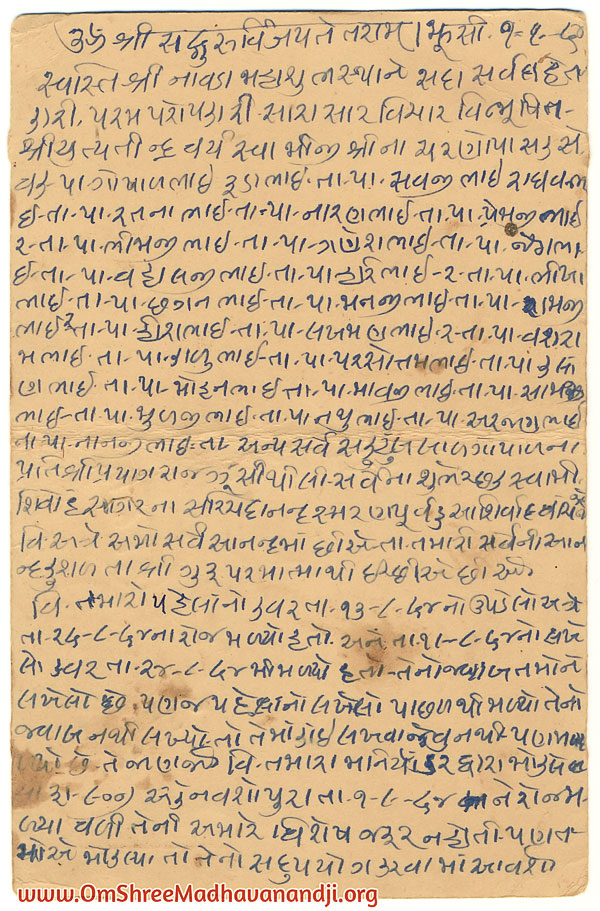 ૐ શ્રી સદ્ગુરુર્વિજયતેતરામ્। ઝૂસી. ૧-૯-૮૪
સ્વસ્તિ શ્રી નાવડા મહાશુભસ્થાને સદા સર્વહિત
કારી. પરમ પરોપકારી. સારાસાર વિચાર વિભૂષિત-
શ્રીયત્ યતીન્દ્રવર્ય સ્વામીજી શ્રીના ચરણોપાસક સે
વક પા. ગોબાળભાઈ રૂડાભાઈ. તા. પા. સવજીભાઈ રાઘવભા
ઈ. તા. પા. રતનાભાઈ. તા. પા. નારણભાઈ. તા. પા. પ્રેમજીભાઈ
૨. તા. પા. ભીમજીભાઈ. તા. પા. ગણેશભાઈ. તા. પા. જેરામભા
ઈ. તા. પા. વશ્રામભાઈ તા. પા. હરિભાઈ-૨. તા. પા. ભીખા
ભાઈ. તા. પા. છગનભાઈ. તા. પા. મનજીભાઈ. તા. પા. રામજી
ભાઈ ૨ તા. પા. હીરાભાઈ. તા. પા. લખમણભાઈ ૨. તા. પા. વશરા
મભાઈ. તા. પા. કાળુભાઈ. તા. પા. પરસોતમભાઈ. તા. પા. કલ્યા
ણભાઈ. તા. પા. મોહનભાઈ તા. પા. માવજીભાઈ. તા. પા. સામજી
ભાઈ. તા. પા. મુળજીભાઈ. તા. પા. નથુભાઈ. તા. પા. અરજણભાઈ
તા. પા. નાનજીભાઈ. તા. અન્ય સર્વ સકુટુંબ બાળગોપાળના
પ્રતિ શ્રી પ્રયાગરાજ ઝૂસીથી લી. સર્વના શુભેચ્છક સ્વામી
શિવોહંસાગરના સચ્ચિદાનન્દ સ્મરણપૂર્વક આશિર્વાદ
વિ. અત્રે અમો સર્વે આનન્દમાં છીએ. તો. તમારી સર્વેની આન
ન્દકુશળતા શ્રી ગુરુ પરમાત્માથી ઇચ્છીએ છીએ
વિ. તમારો પહેલાંનો કવર તા. ૧૩-૮-૮૪નો લખેલો અત્રે
તા. ૨૮-૮-૮૪ના રોજ મળ્યો હતો. અને તા. ૧૮-૮-૮૪નો લખે
લો કવર તા. ૨૪-૮-૮૪મી મળ્યો હતો. તેનો જવાબ તમોને
લખેલો છે. પણ જે પહેલાંનો લખેલો પાછળથી મળ્યો તેનો
જવાબ નથી લખ્યો. તો તેમાં કોઈ લખવા જેવું નથી. પણ મ
ળ્યો છે તે જાણજો વિ. તમારા મનિઓર્ડર દ્વારા મોકલેલ
રૂા. ૯૦૦) એક નવશો પુરા તા. ૧-૯-૮૪ ને રોજ મ
ળ્યા વળી તેની અમારે વિશેષ જરૂર નહોતી. પણ ત
મોએ મોકલ્યા તો તેનો સદુપયોગ કરવામાં આવશે
www.OmShreeMadhavanandji.org